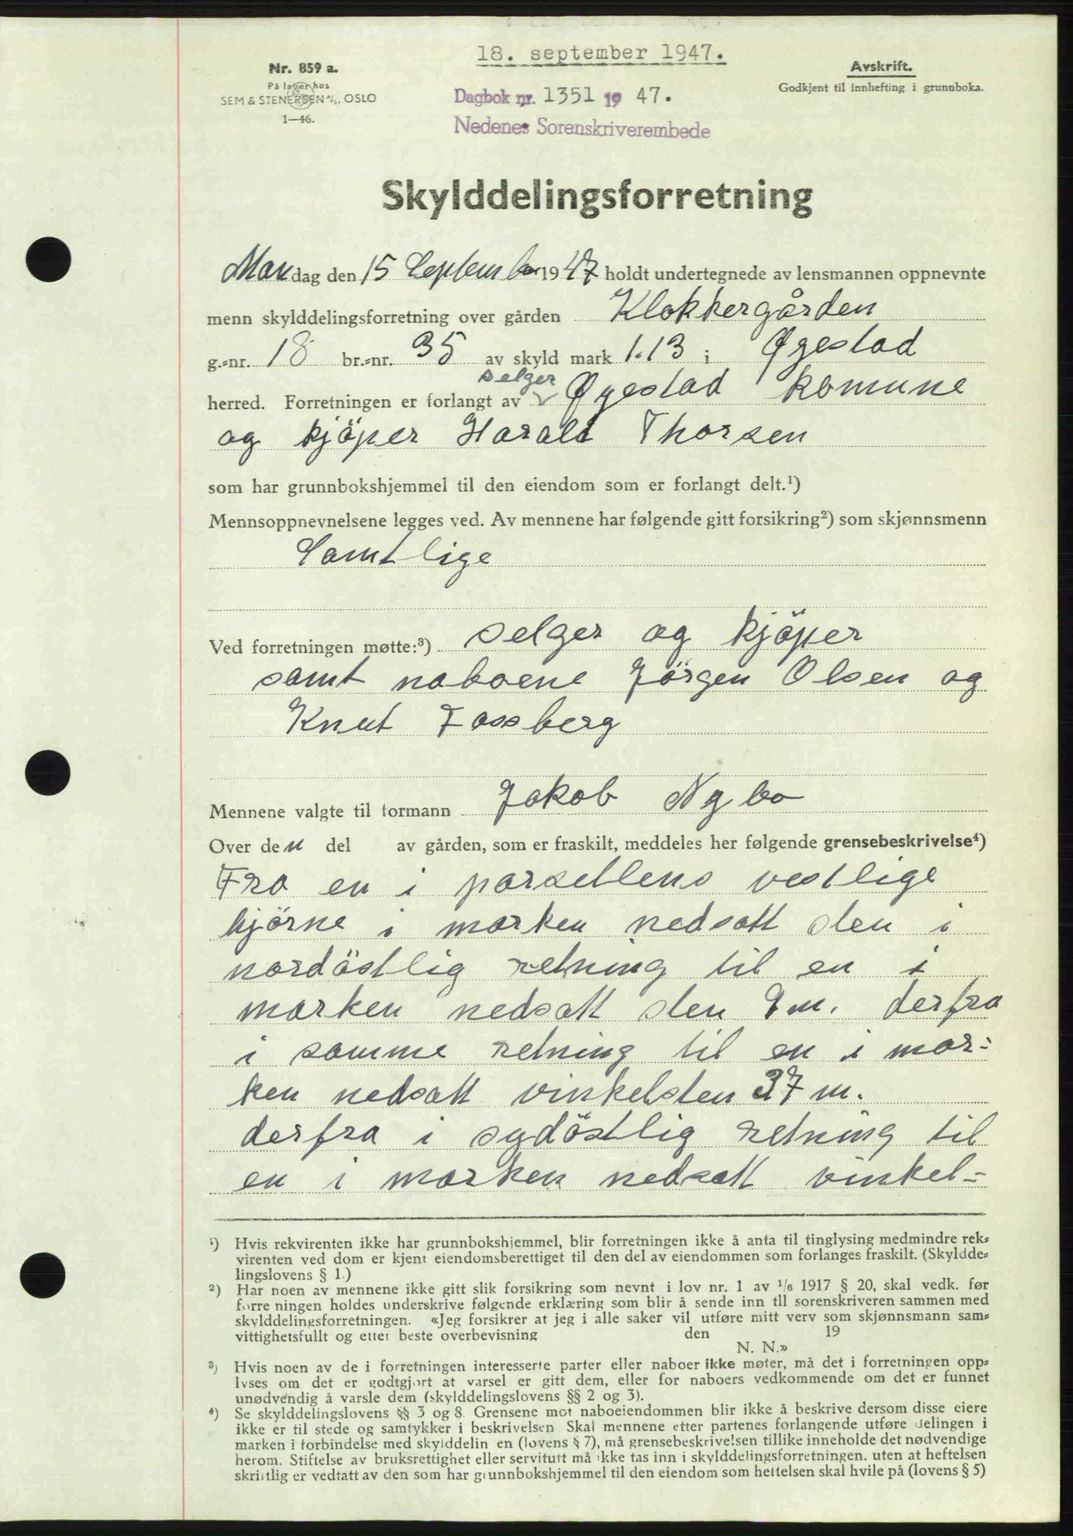 18. september 1947.
Nr. 859 a.
På lager hos
SEM & STENERSEN A/S, OSLO
1—46.
Dagbok nr. 1351 19 47.
Nedenes Sorenskriverembede
Avskrift.
Godkjent til innhefting i grunnboka.
Skylddelingsforretning
Mandag den 15 September 1947 holdt undertegnede av lensmannen oppnevnte
menn skylddelingsforretning over gården Klokkergården
g.-nr. 18 br.-nr. 35 av skyld mark 1.13 i Øyestad
selger
herred. Forretningen er forlangt av √ Øyestad komune
og kjöper Harald Thorsen
som har grunnbokshjemmel til den eiendom som er forlangt delt.¹)
Mennsoppnevnelsene legges ved. Av mennene har følgende gitt forsikring²) som skjønnsmenn
Samtlige
Ved forretningen møtte:³) selger og kjöper
samt naboene Jörgen Olsen og
Knut Fossberg
Mennene valgte til formann Jakob Nybo
Over den del av gården, som er fraskilt, meddeles her følgende grensebeskrivelse⁴)
Fra en i parsellens vestlige
hjörne i marken nedsatt sten i
nordöstlig retning til en i
marken nedsatt sten 9 m. derfra
i samme retning til en i mar-
ken nedsatt vinkelsten 37 m.
derfra i sydöstlig retning til
en i marken nedsatt vinkel-
¹) Hvis rekvirenten ikke har grunnbokshjemmel, blir forretningen ikke å anta til tinglysing medmindre rek-
virenten ved dom er kjent eiendomsberettiget til den del av eiendommen som forlanges fraskilt. (Skyldde-
lingslovens § 1.)
²) Har noen av mennene ikke gitt slik forsikring som nevnt i lov nr. 1 av 1/6 1917 § 20, skal vedk. før
forretningen holdes underskrive følgende erklæring som blir å sende inn til sorenskriveren sammen med
skylddelingsforretningen. «Jeg forsikrer at jeg i alle saker vil utføre mitt verv som skjønnsmann sam-
vittighetsfullt og etter beste overbevisning den 19
N. N.»
³) Hvis noen av de i forretningen interesserte parter eller naboer ikke møter, må det i forretningen opp-
lyses om det er godtgjort at varsel er gitt dem, eller for naboers vedkommende om det er funnet
unødvendig å varsle dem (skylddelingslovens §§ 2 og 3).
⁴) Se skylddelingslovens §§ 3 og 8. Grensene mot naboeiendommen blir ikke å beskrive dersom disse eiere
ikke er til stede og samtykker i beskrivelsen Skal mennene etter partenes forlangende utføre delingen i
marken i forbindelse med skylddelin en (lovens § 7), må grensebeskrivelsen tillike inneholde det nødvendige
herom. Stiftelse av bruksrettighet eller servitutt må ikke tas inn i skylddelingsforretningen. uten at heftelsen
skriftlig er vedtatt av den som har grunnbokshjemmel til den eiendom som heftelsen skal hvile på (lovens § 5)